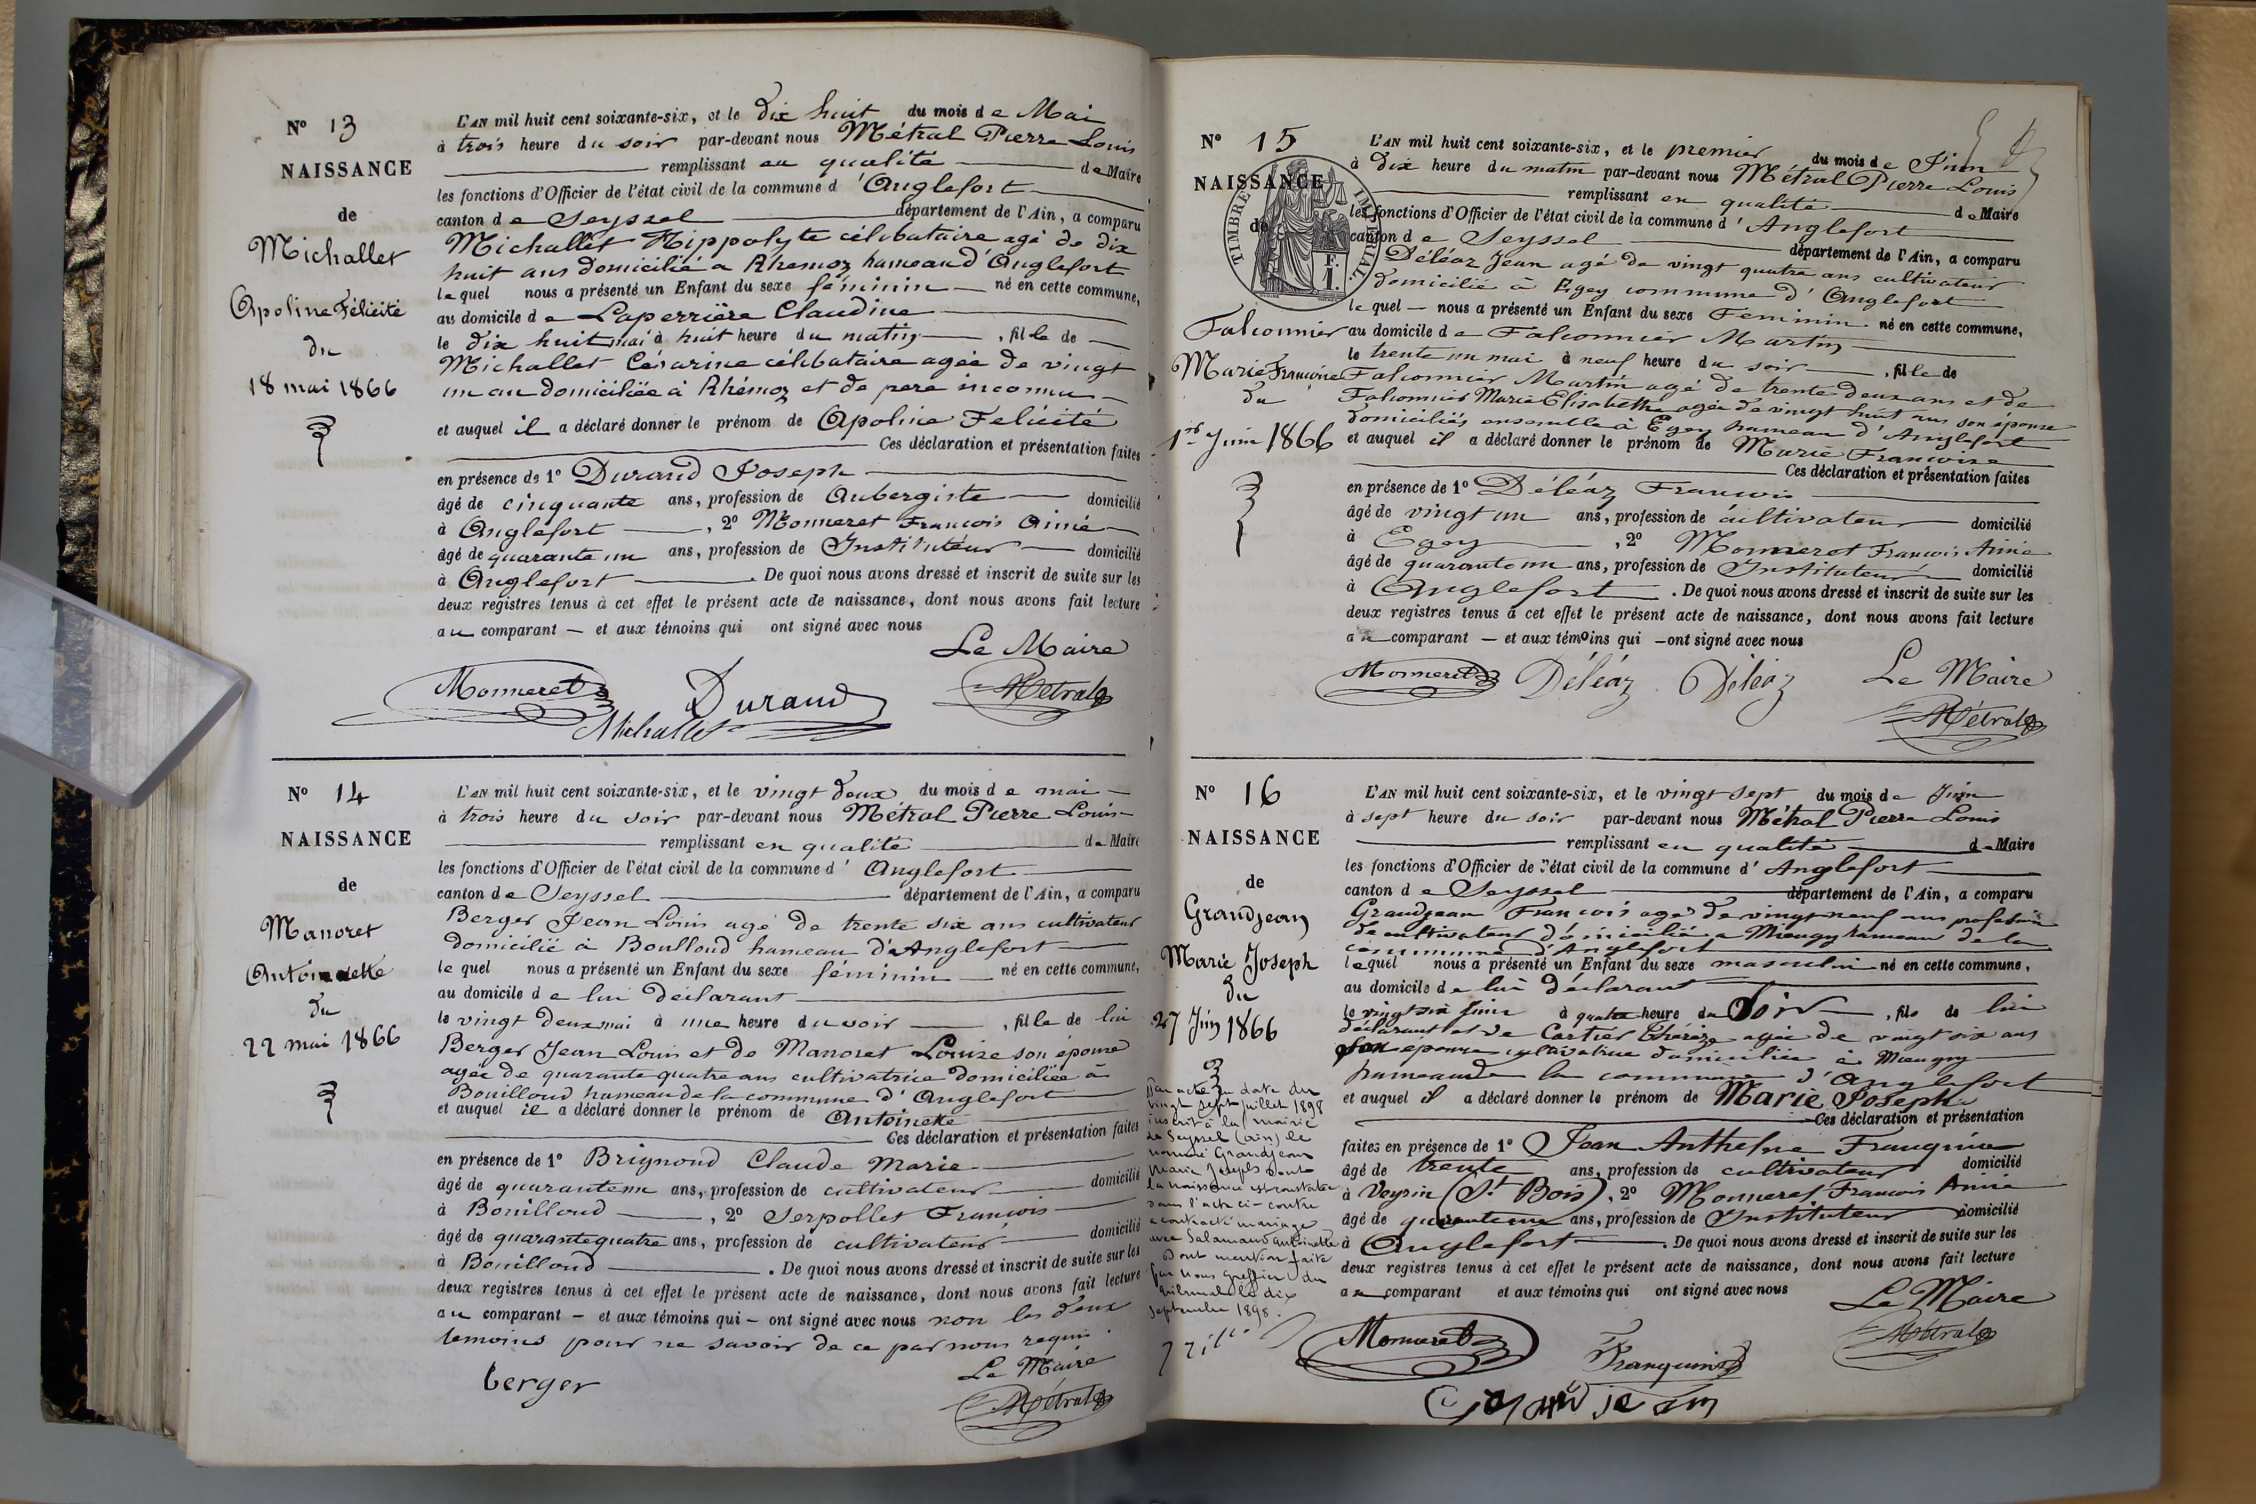 N° 13
NAISSANCE
de
Michallet
Apoline Félicité
du
18 mai 1866
L'AN mil huit cent soixante-six, et le dix huit du mois de Mai
à trois heure du soir par-devant nous Métral Pierre Louis
remplissant en qualité de Maire
les fonctions d'Officier de l'état civil de la commune d'Anglefort
canton de Seyssel département de l'Ain, a comparu
Michallet Hippolyte célibataire agé de dix
huit ans domicilié a Rhemoz hameau d'Anglefort
lequel nous a présenté un Enfant du sexe féminin né en cette commune,
au domicile de Laperrière Claudine
le dix huit mai à huit heure du matin, fille de
Michallet Césarine célibataire agée de vingt
un an domiciliée à Rhémoz et de pere inconnu
et auquel il a déclaré donner le prénom de Apoline Felicité
Ces déclaration et présentation faites
en présence de 1° Durand Joseph
âgé de cinquante ans, profession de Aubergiste domicilié
à Anglefort, 2° Monneret François Aimé
âgé de quarante un ans, profession de Instituteur domicilié
à Anglefort. De quoi nous avons dressé et inscrit de suite sur les
deux registres tenus à cet effet le présent acte de naissance, dont nous avons fait lecture
au comparant et aux témoins qui ont signé avec nous
Le Maire
Monneret Durand Métral
Michallet
N° 14
NAISSANCE
de
Manoret
Antoinette
du
22 mai 1866
L'AN mil huit cent soixante-six, et le vingt deux du mois de mai
à trois heure du soir par-devant nous Métral Pierre Louis
remplissant en qualité de Maire
les fonctions d'Officier de l'état civil de la commune d'Anglefort
canton de Seyssel département de l'Ain, a comparu
Berger Jean Louis agé de trente six ans cultivateur
domicilié à Boulloud hameau d'Anglefort
lequel nous a présenté un Enfant du sexe féminin né en cette commune,
au domicile de lui déclarant
le vingt deux mai à une heure du soir, fille de lui
Berger Jean Louis et de Manoret Louise son épouse
agée de quarante quatre ans cultivatrice domiciliée à
Bouilloud hameau de la commune d'Anglefort
et auquel il a déclaré donner le prénom de Antoinette
Ces déclaration et présentation faites
en présence de 1° Brignond Claude Marie
âgé de quarante un ans, profession de cultivateur domicilié
à Bouilloud, 2° Serpollet François
âgé de quarante quatre ans, profession de cultivateur domicilié
à Bouilloud. De quoi nous avons dressé et inscrit de suite sur les
deux registres tenus à cet effet le présent acte de naissance, dont nous avons fait lecture
au comparant et aux témoins qui ont signé avec nous non les deux
temoins pour ne savoir de ce par nous requis.
Le Maire
berger Métral
N° 15
NAISSANCE
de
TIMBRE IMPÉRIAL.
F.
1.
Falconnier
Marie Françoise
du
1er Juin 1866
L'AN mil huit cent soixante-six, et le premier du mois de Juin
à dix heure du matin par-devant nous Métral Pierre Louis
remplissant en qualité de Maire
les fonctions d'Officier de l'état civil de la commune d'Anglefort
canton de Seyssel département de l'Ain, a comparu
Déléaz Jean agé de vingt quatre ans cultivateur
domicilié à Egey commune d'Anglefort
lequel nous a présenté un Enfant du sexe Féminin né en cette commune,
au domicile de Falconnier Martin
le trente un mai à neuf heure du soir, fille de
Falconnier Martin agé de trente deux ans et de
Falconnier Marie Elisabethe agée de vingt huit ans son épouse
domiciliés ensemble à Egey hameau d'Anglefort
et auquel il a déclaré donner le prénom de Marie Francoise
Ces déclaration et présentation faites
en présence de 1° Déléaz Francois
âgé de vingt un ans, profession de cultivateur domicilié
à Egey, 2° Monneret François Aimé
âgé de quarante un ans, profession de Instituteur domicilié
à Anglefort. De quoi nous avons dressé et inscrit de suite sur les
deux registres tenus à cet effet le présent acte de naissance, dont nous avons fait lecture
au comparant et aux témoins qui ont signé avec nous
Monneret Déléaz Déléaz Le Maire
Métral
N° 16
NAISSANCE
de
Grandjean
Marie Joseph
du
27 Juin 1866
Par acte en date du
vingt sept juillet 1898
inscrit à la mairie
de Seyssel (ain) le
nommé Grandjean
Marie Joseph dont
la naissance est constatée
dans l'acte ci-contre
a contracté mariage
avec Salamand Antoinette
Dont mention faite
par nous greffier du
tribunal le dix
septembre 1898.
L'AN mil huit cent soixante-six, et le vingt sept du mois de Juin
à sept heure du soir par-devant nous Métral Pierre Louis
remplissant en qualité de Maire
les fonctions d'Officier de l'état civil de la commune d'Anglefort
canton de Seyssel département de l'Ain, a comparu
Grandjean François agé de vingt neuf ans profession
de cultivateur domicilié a Mieugy hameau de la
commune d'Anglefort
lequel nous a présenté un Enfant du sexe masculin né en cette commune,
au domicile de lui déclarant
le vingt six juin à quatre heure du Soir, fils de lui
déclarant et de Cartier Thérèze agée de vingt six ans
son épouse cultivatrice domiciliée à Mieugy
hameau de la commune d'Anglefort
et auquel il a déclaré donner le prénom de Marie Joseph
Ces déclaration et présentation
faites en présence de 1° Jean Anthelme Franquin
âgé de trente ans, profession de cultivateur domicilié
à Veyrin (St Bois), 2° Monneret François Aimé
âgé de quarante un ans, profession de Instituteur domicilié
à Anglefort. De quoi nous avons dressé et inscrit de suite sur les
deux registres tenus à cet effet le présent acte de naissance, dont nous avons fait lecture
au comparant et aux témoins qui ont signé avec nous
Le Maire
Monneret Franquin Métral
Grandjean